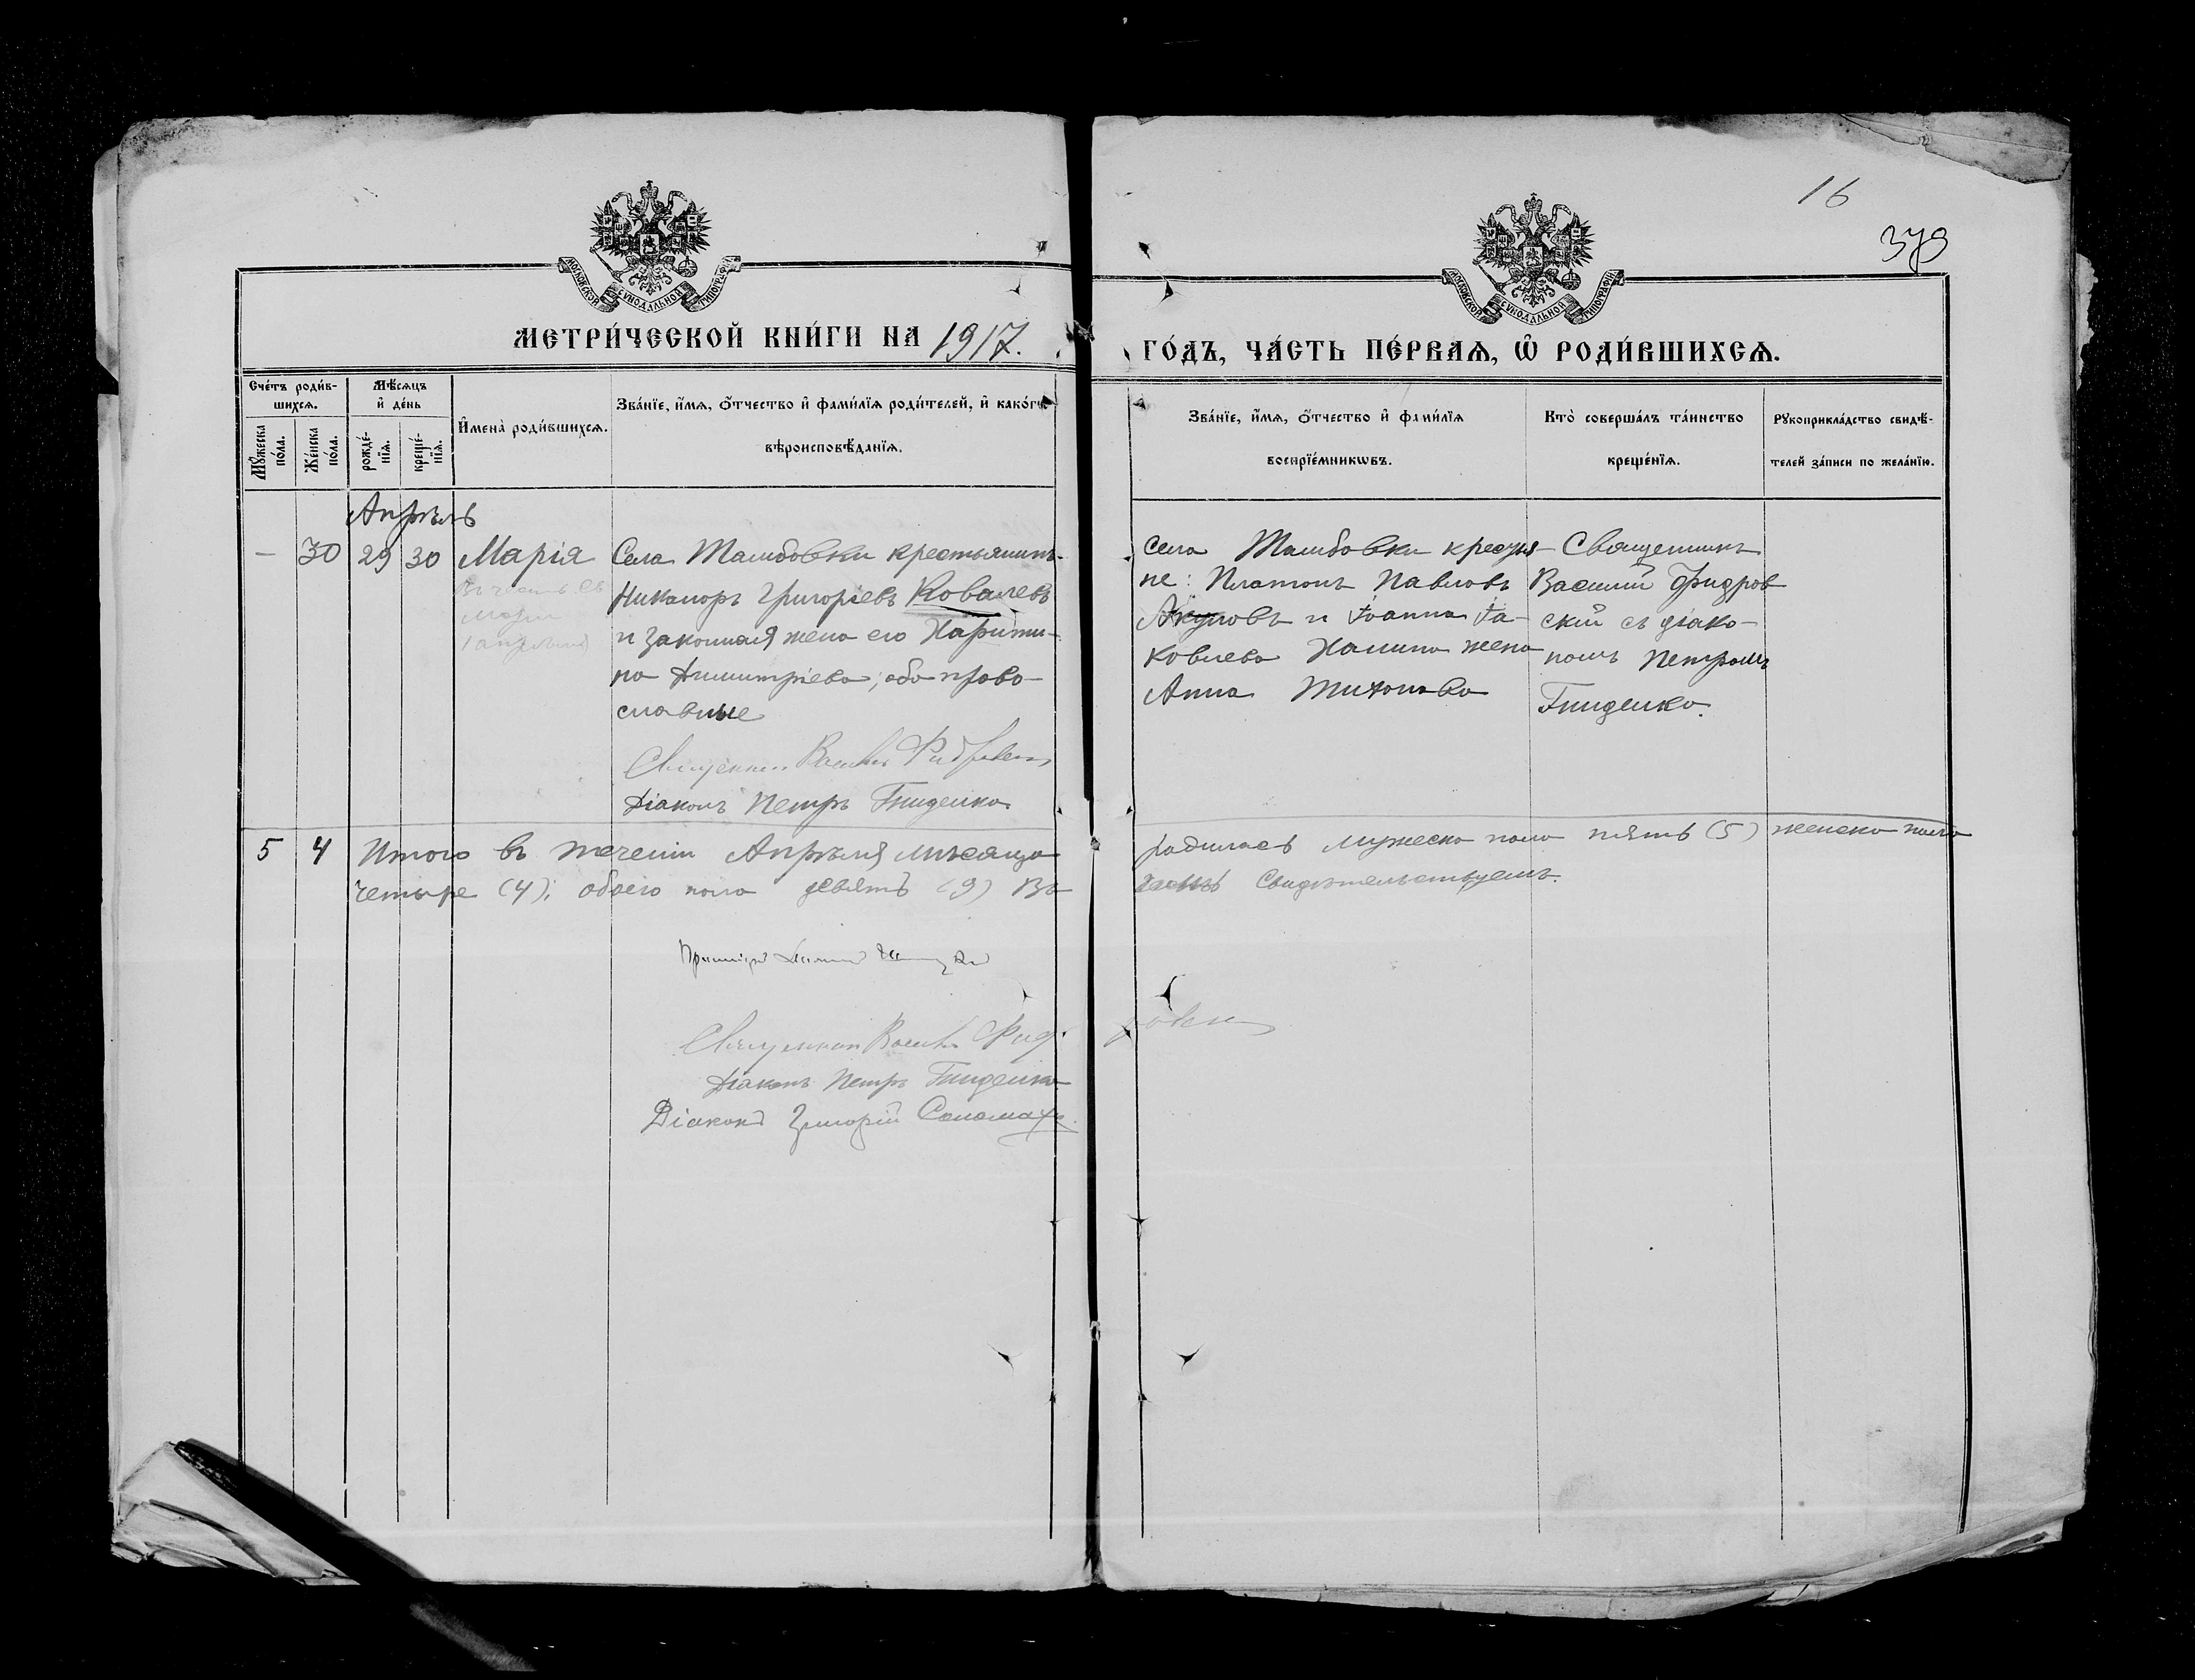 16
379
МОСКОВСКОЙ СѴНОДАЛЬНОЙ ТИПОГРАФІИ
МОСКОВСКОЙ СѴНОДАЛЬНОЙ ТИПОГРАФІИ
МЕТРИ́ЧЕСКОЙ КНИ́ГИ НА 1917.
ГО́ДЪ, ЧА́СТЬ ПЕ́РВАѦ, Ѽ РОДИ́ВШИХСѦ.
Сче́тъ роди́в-
шихсѧ.
Мꙋ́жеска по́ла.
Же́нска по́ла.
Мѣ́сѧцъ
и҆ де́нь
рожде́-
нїѧ.
креще́-
нїѧ.
И҆мена̀ роди́вшихсѧ.
Зва́нїе, и҆́мѧ, ѻ҆́тчество и҆ фами́лїѧ роди́телей, и҆ како́гѡ
вѣроисповѣ́данїѧ.
Зва́нїе, и҆́мѧ, ѻ҆́тчество и҆ фами́лїѧ
воспрїе́мникѡвъ.
Кто̀ соверша́лъ та́инство
креще́нїѧ.
Рꙋкоприкла́дство свидѣ́-
телей за́писи по жела́нїю.
Апрѣль
— 30 29 30 Марія
Въ честь св
Маріи
1 апрѣля
Села Тамбовки крестьянинъ
Никаноръ Григоріевъ Ковалевъ
и законная жена его Харити-
на Димитріева; оба право-
славные
Священникъ Василій
Діаконъ Петръ Гниденко
села Тамбовки крестья-
не: Платонъ Павловъ
Акуловъ и Іоанна Іа-
ковлева жена
Анна Тихонова
Священникъ
Василій Фидров
скій съ діако-
номъ Петромъ
Гниденко.
5 4 Итого въ теченіи Апрѣля мѣсяца
родилась мужеска пола пять (5) женска пола
четыре (4); обоего пола девять (9) Въ
чемъ Свидѣтельствуемъ.
Священникъ Василій Фид-
ровскій
Діаконъ Петръ Гниденко
Діаконъ Григорій Соломаха